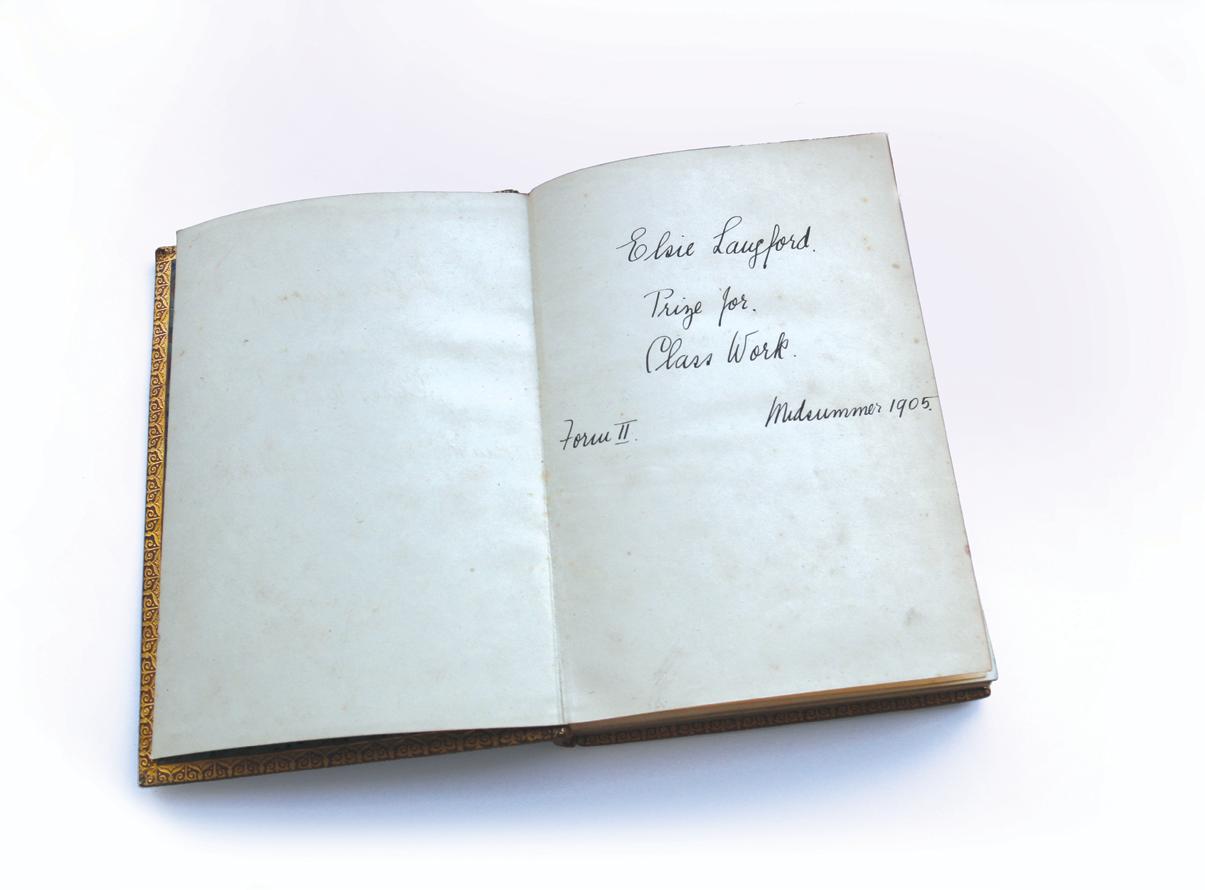 Elsie Langford.
Prize for.
Class Work.
Midsummer 1905.
Form II.